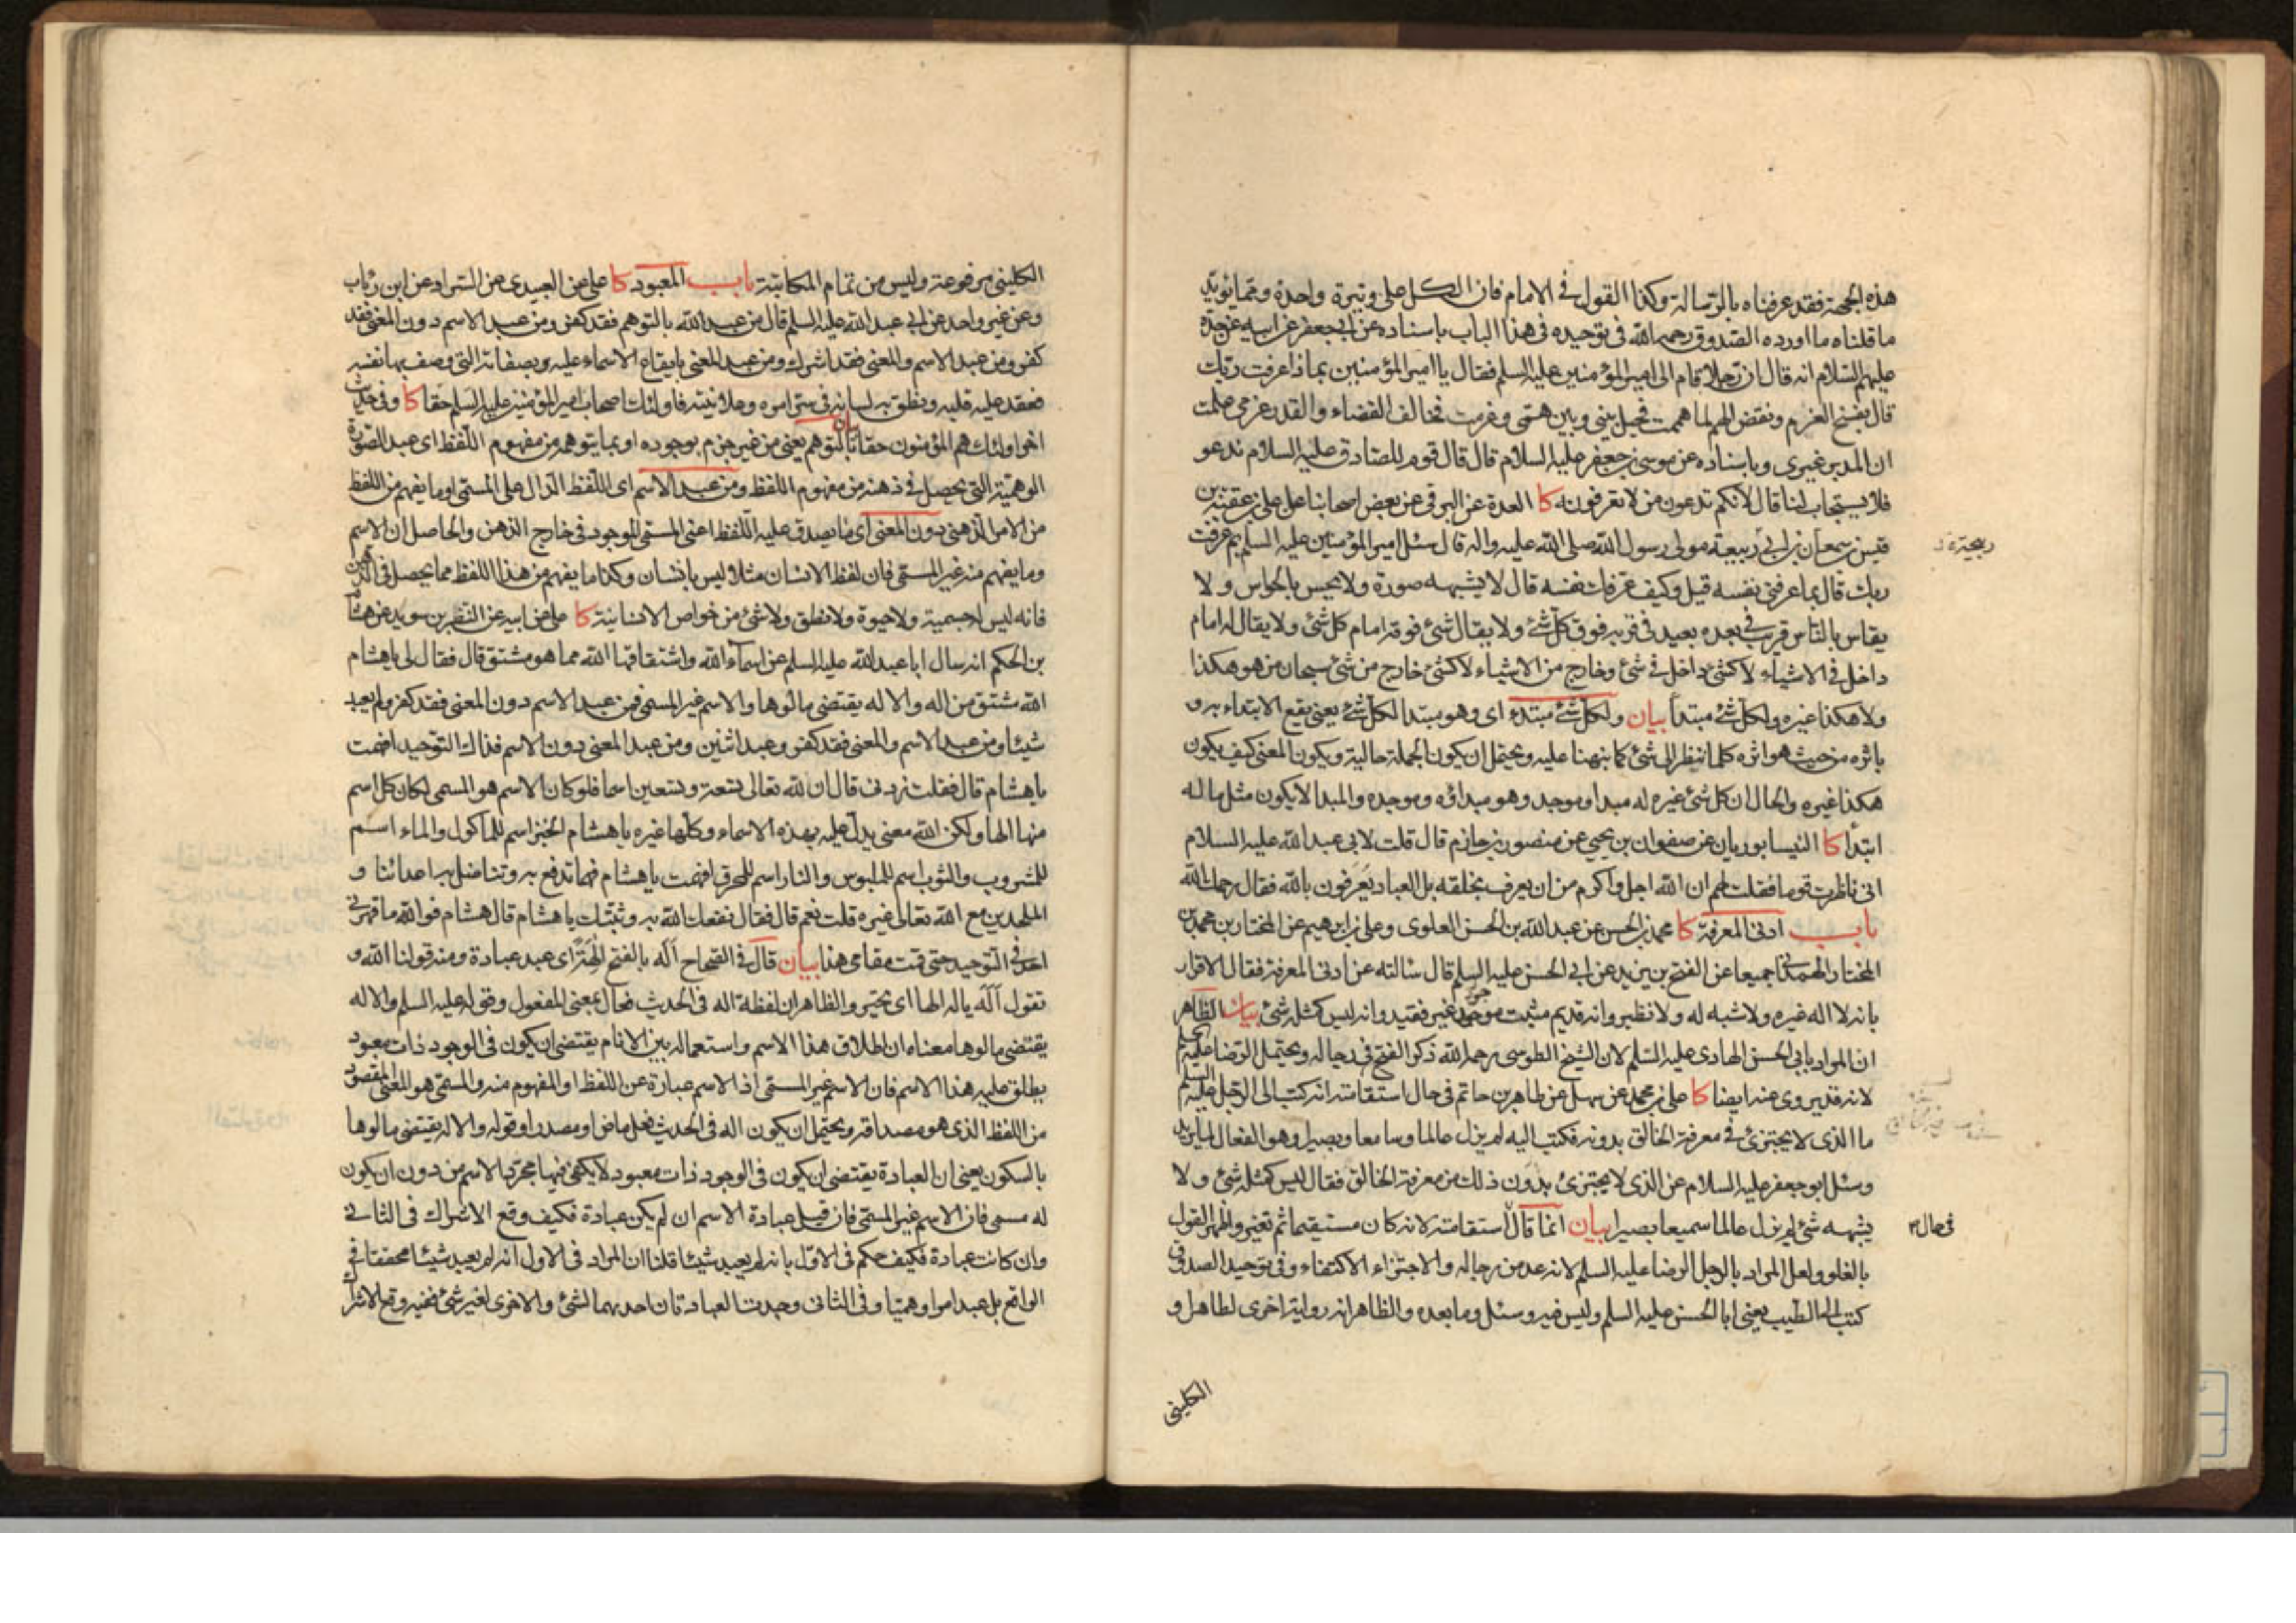 هذه الحجة فقد عرفناه بالرسالة وكذا القول في الامام فان الكل على وتيرة واحدة ومما يؤيد
ما قلناه ما اورده الصدوق رحمه الله في توحيده في هذا الباب باسناده عن ابي جعفر عن ابيه عن جده
عليهم السلام انه قال ان رجلا قام الى امير المؤمنين عليه السلم فقال يا امير المؤمنين بماذا عرفت ربك
قال بفسخ العزم ونقض الهم لما هممت فحيل بيني وبين همتي وعزمت فخالف القضاء والقدر عزمي علمت
ان المدبر غيري وباسناده عن موسى بن جعفر عليه السلام قال قال قوم للصادق عليه السلام ندعو
فلا يستجاب لنا قال لانكم تدعون من لا تعرفونه كا العدة عن البرقي عن بعض اصحابنا عن علي بن عقبة بن
قيس بن سمعان بن ابي ربيعة مولى رسول الله صلى الله عليه واله قال سئل امير المؤمنين عليه السلم بم عرفت
ربك قال بما عرفني نفسه قيل وكيف عرفك نفسه قال لا يشبهه صورة ولا يحس بالحواس ولا
يقاس بالناس قريب في بعده بعيد في قربه فوق كل شئ ولا يقال شئ فوقه امام كل شئ ولا يقال له امام
داخل في الاشياء لا كشئ داخل في شئ وخارج من الاشياء لا كشئ خارج من شئ سبحان من هو هكذا
ولا هكذا غيره ولكل شئ مبتدأ بيان ولكل شئ مبتدء اي وهو مبتدا لكل شئ يعني يقع الابتداء به و
باثره من حيث هو اثره كلما ننظر الى شئ كما نبهنا عليه ويحتمل ان يكون الجملة حالية ويكون المعنى كيف يكون
هكذا غيره والحال ان كل شئ غيره له مبدا وموجد وهو مبدائه وموجده والمبدا لا يكون مثل ما له
ابتدأ كا النيسابوريان عن صفوان بن يحيى عن منصور بن حازم قال قلت لابي عبد الله عليه السلام
اني ناظرت قوما فقلت لهم ان الله اجل واكرم من ان يعرف بخلقه بل العباد يعرفون بالله فقال رحمك الله
باب ادنى المعرفة كا محمد بن الحسن عن عبد الله بن الحسن العلوي وعلي بن ابرهيم عن المختار بن محمد بن
المختار الهمداني جميعا عن الفتح بن يزيد عن ابي الحسن عليه السلم قال سالته عن ادنى المعرفة فقال الاقرار
بانه لا اله غيره ولا شبه له ولا نظير وانه قديم مثبت موجود غير فقيد وانه ليس كمثله شئ بيان الظاهر
ان المراد بابي الحسن الهادي عليه السلم لان الشيخ الطوسي رحمه الله ذكر الفتح في رجاله ويحتمل الرضا عليه السلم
لانه قد يروي عنه ايضا كا علي بن محمد عن سهل عن طاهر بن حاتم في حال استقامته انه كتب الى الرجل عليه السلم
ما الذي لا يجتزئ في معرفة الخالق بدونه فكتب اليه لم يزل عالما وسامعا وبصيرا وهو الفعال لما يريد
وسئل ابو جعفر عليه السلام عن الذي لا يجتزئ بدون ذلك من معرفة الخالق فقال ليس كمثله شئ ولا
يشبهه شئ لم يزل عالما سميعا بصيرا بيان انما قال استقامته لانه كان مستقيما ثم تغير واظهر القول
في حال
بالغلو ولعل المراد بالرجل الرضا عليه السلم لانه عد من رجاله والاجتزاء الاكتفاء وفي توحيد الصدوق
كتب الى الطيب يعني ابا الحسن عليه السلم وليس فيه وسئل وما بعده والظاهر انه رواية اخرى لطاهر او
الكليني
الكليني مرفوعة وليس من تمام المكاتبة باب المعبود كا علي عن العبيدي عن السراد عن ابن رئاب
وعن غير واحد عن ابي عبد الله عليه السلم قال من عبد الله بالتوهم فقد كفر ومن عبد الاسم دون المعنى فقد
كفر ومن عبد الاسم والمعنى فقد اشرك ومن عبد المعنى بايقاع الاسماء عليه وبصفاته التي وصف بها نفسه
فعقد عليه قلبه ونطق به لسانه في سر امره وعلانيته فاولئك اصحاب امير المؤمنين عليه السلم حقا كا وفي حديث
اخر اولئك هم المؤمنون حقا بيان بالتوهم يعني من غير جزم بوجوده او بما يتوهم من مفهوم اللفظ اي عبد الصورة
الوهمية التي يحصل في ذهنه من مفهوم اللفظ ومن عبد الاسم اي اللفظ الدال على المسمى او ما يفهم من اللفظ
من الامر الذهني دون المعنى اي ما يصدق عليه اللفظ اعني المسمى الموجود في خارج الذهن والحاصل ان الاسم
وما يفهم منه غير المسمى فان لفظ الانسان مثلا ليس بانسان وكذا ما يفهم من هذا اللفظ مما يحصل في الذهن
فانه ليس له جسمية ولا حيوة ولا نطق ولا شئ من خواص الانسانية كا علي عن ابيه عن النضر بن سويد عن هشام
بن الحكم انه سال ابا عبد الله عليه السلم عن اسماء الله واشتقاقها الله مما هو مشتق قال فقال لي يا هشام
الله مشتق من اله والاله يقتضي مالوها والاسم غير المسمى فمن عبد الاسم دون المعنى فقد كفر ولم يعبد
شيئا ومن عبد الاسم والمعنى فقد كفر وعبد اثنين ومن عبد المعنى دون الاسم فذاك التوحيد افهمت
يا هشام قال فقلت زدني قال ان لله تعالى تسعة وتسعين اسما فلو كان الاسم هو المسمى لكان كل اسم
منها الها ولكن الله معنى يدل عليه بهذه الاسماء وكلها غيره يا هشام الخبز اسم للماكول والماء اسم
للمشروب والثوب اسم للملبوس والنار اسم للمحرق افهمت يا هشام فهما تدفع به وتناضل به اعدائنا و
الملحدين مع الله تعالى غيره قلت نعم قال فقال نفعك الله به وثبتك يا هشام قال هشام فوالله ما قهرني
احد في التوحيد حتى قمت مقامي هذا بيان قال في الصحاح اله بالفتح الهة اي عبد عبادة ومنه قولنا الله و
تقول اله ياله الها اي تحير والظاهر ان لفظة اله في الحديث فعال بمعنى المفعول وقوله عليه السلم والاله
يقتضي مالوها معناه ان اطلاق هذا الاسم واستعماله بين الانام يقتضي ان يكون في الوجود ذات معبود
يطلق عليه هذا الاسم فان الاسم غير المسمى اذ الاسم عبارة عن اللفظ او المفهوم منه والمسمى هو المعنى المقصود
من اللفظ الذي هو مصداقه ويحتمل ان يكون اله في الحديث فعل ماض او مصدرا وقوله والاله يقتضي مالوها
بالسكون يعني ان العبادة يقتضي ان يكون في الوجود ذات معبود لا يكفي فيها مجرد الاسم من دون ان يكون
له مسمى فان الاسم غير المسمى فان قيل عبادة الاسم ان لم يكن عبادة فكيف وقع الاشراك في الثاني
وان كانت عبادة فكيف حكم في الاول بانه لم يعبد شيئا قلنا ان المراد في الاول انه لم يعبد شيئا محققا في
الواقع بل عبد امرا وهميا وفي الثاني وجدت العبادتان احديهما لشئ والاخرى لغير شئ ففيه وقع الاشراك